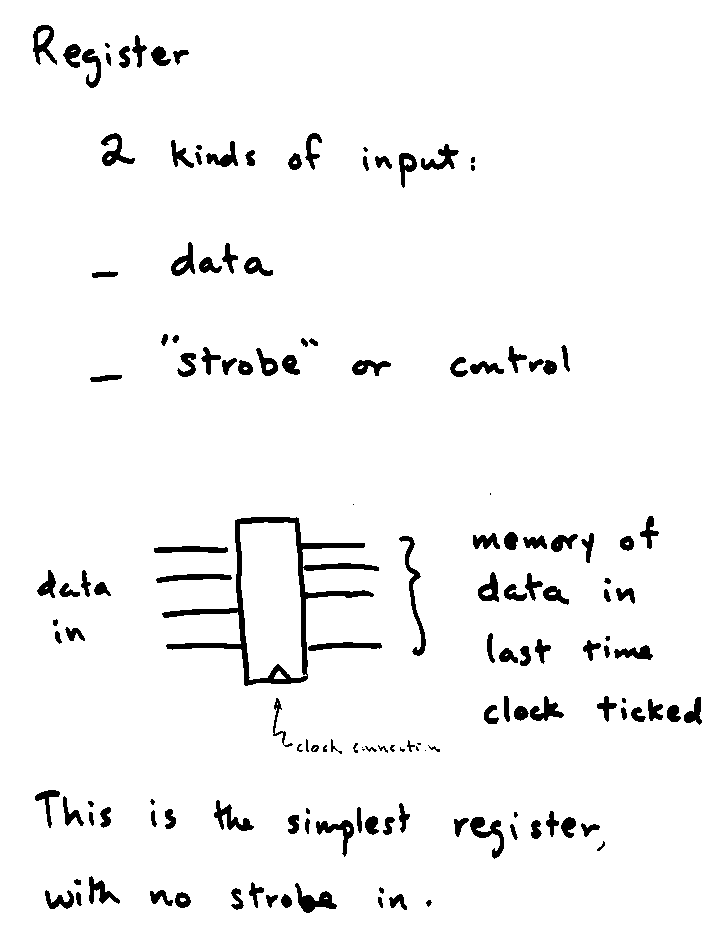 Register
2 kinds of input:
– data
– "strobe" or control
data
in
memory of
data in
last time
clock ticked
clock connection
This is the simplest register,
with no strobe in.